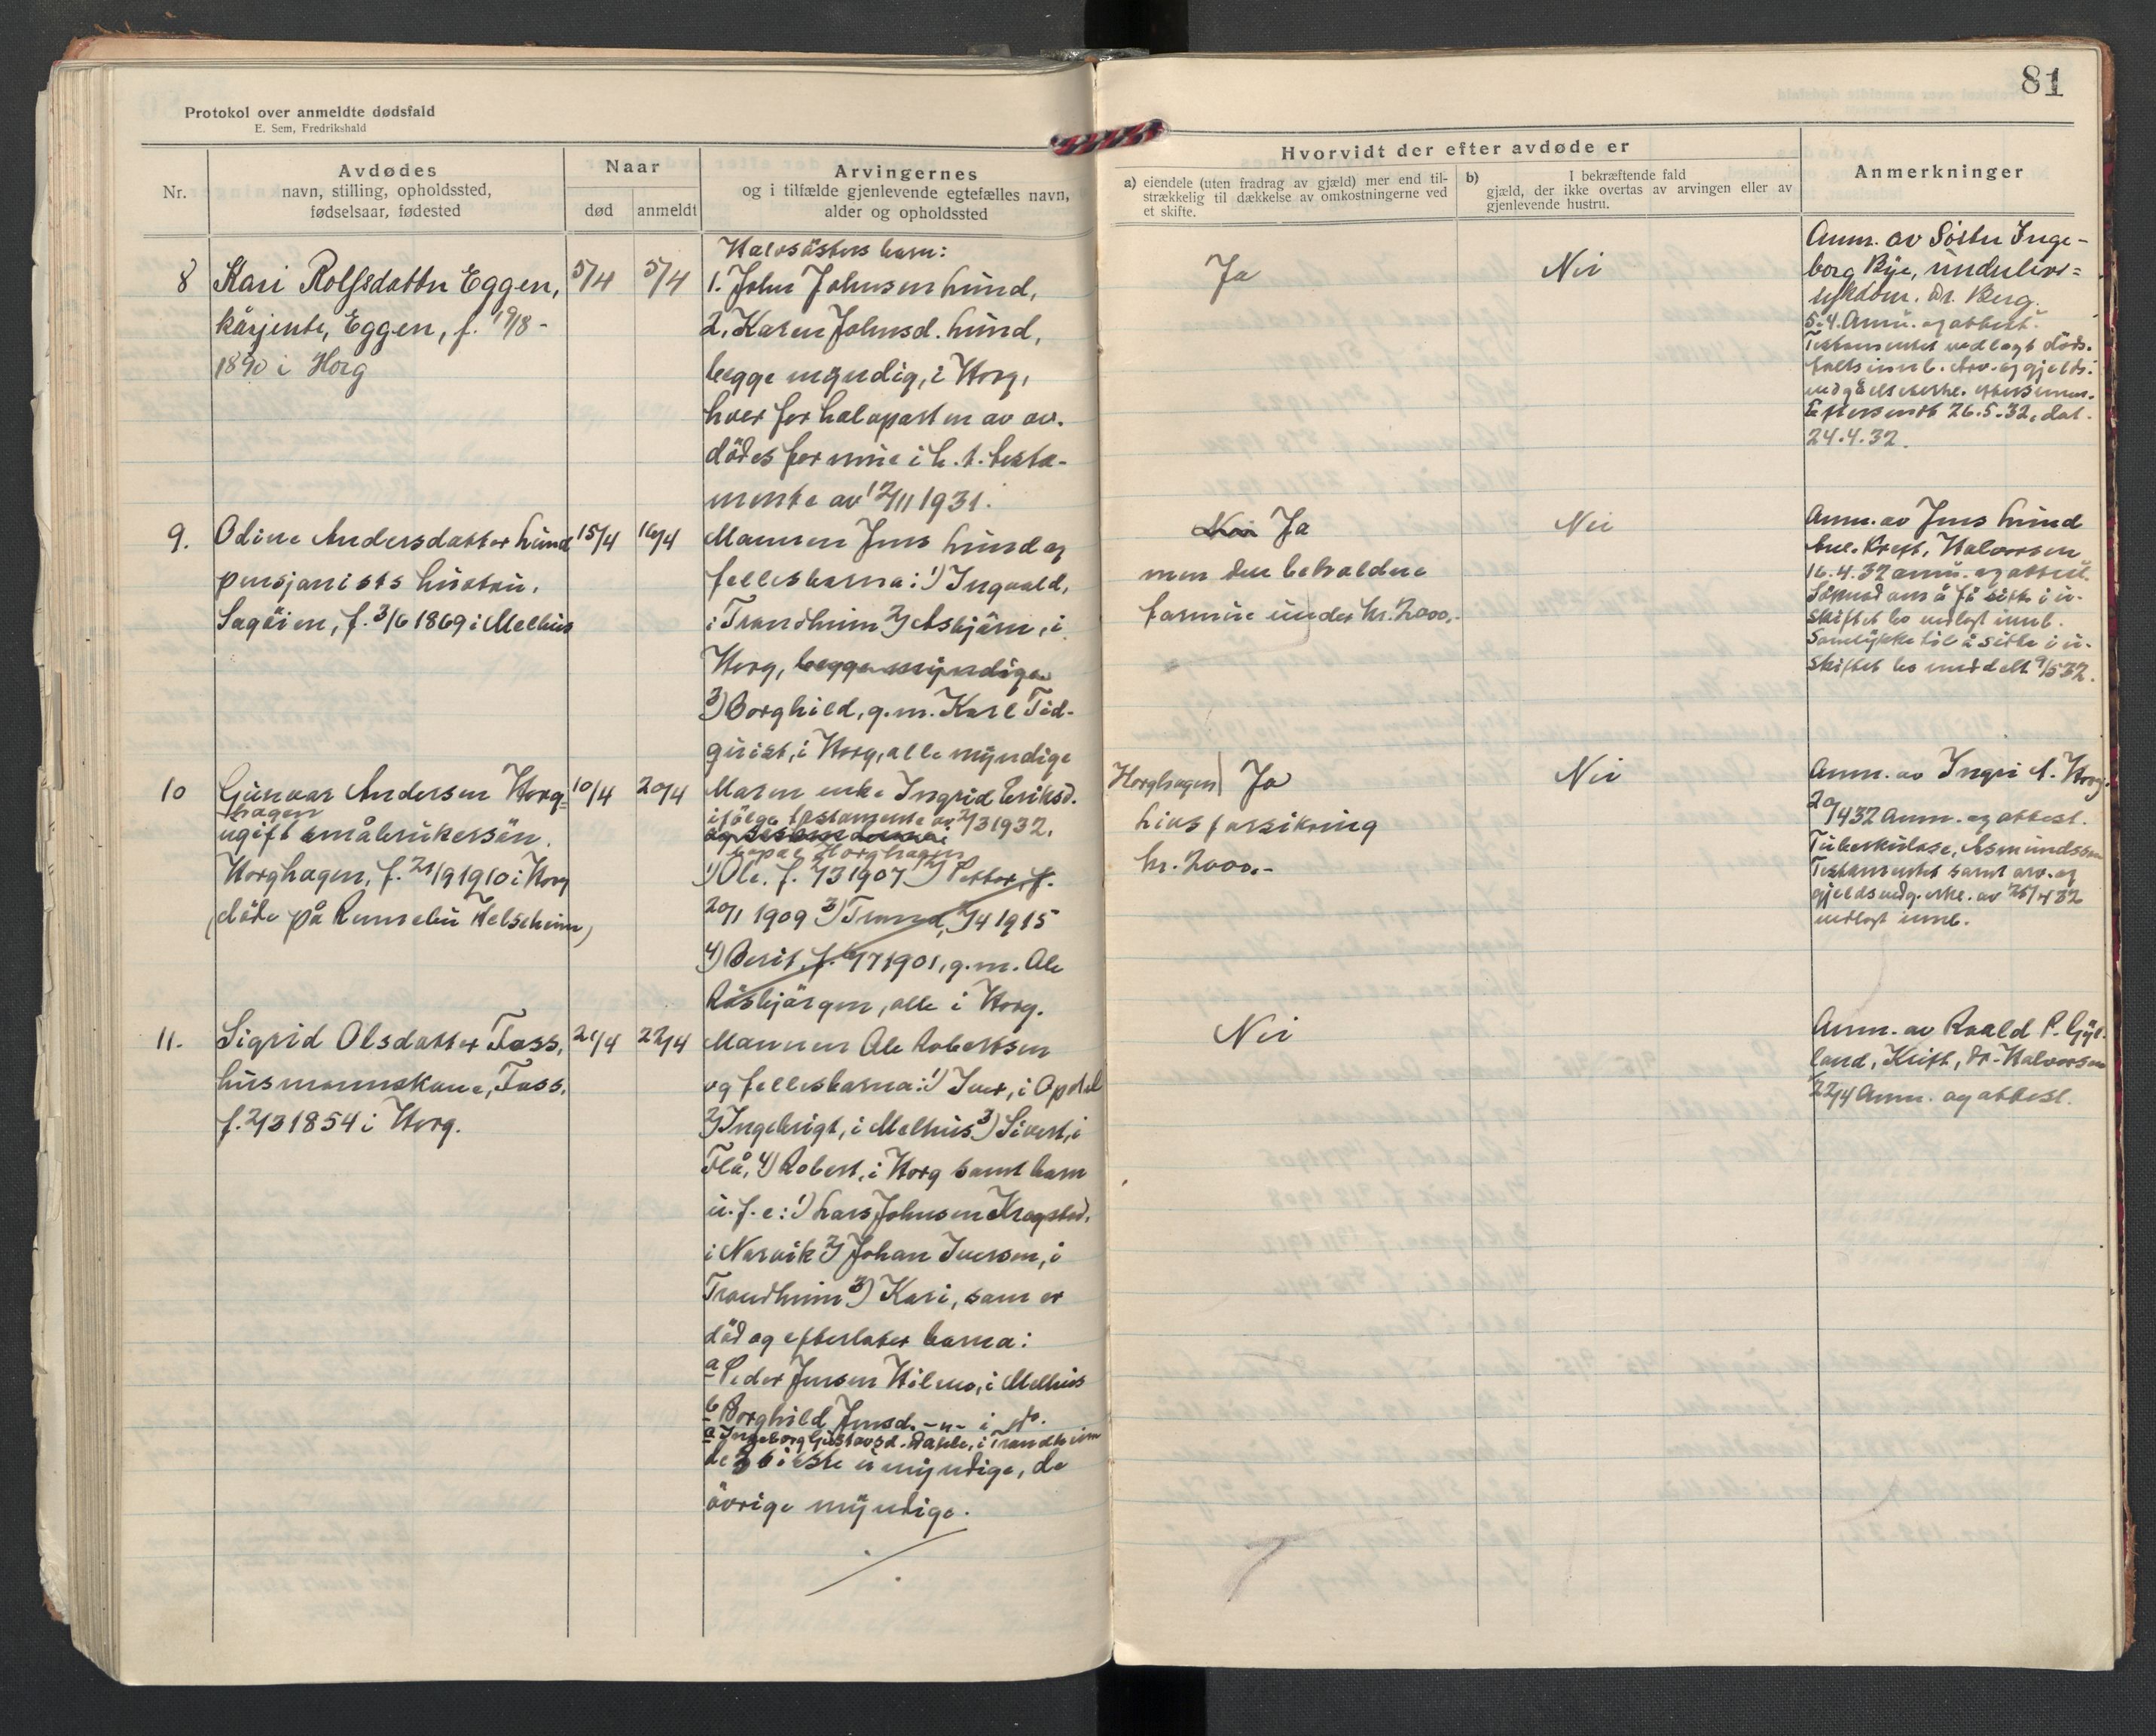 81
Protokol over anmeldte dødsfald
E. Sem, Fredrikshald
Nr.
Avdødes
navn, stilling, opholdssted,
fødselsaar, fødested
Naar
død
anmeldt
Arvingernes
og i tilfælde gjenlevende egtefælles navn,
alder og opholdssted
Hvorvidt der efter avdøde er
a) eiendele (uten fradrag av gjæld) mer end til-
strækkelig til dækkelse av omkostningerne ved
et skifte.
b) I bekræftende fald
gjæld, der ikke overtas av arvingen eller av
gjenlevende hustru.
Anmerkninger
8
Kari Rolfsdatter Eggen,
kårjente, Eggen, f. 19/8-
1890 i Horg
5/4
5/4
Halvsøsters barn:
1. John Johnsen Lund,
2. Karen Johnsd. Lund,
begge myndig, i Horg,
hver for halvparten av av-
dødes formue i h. t. testa-
mente av 12/11 1931.
Ja
Nei
Anm. av Søster Inge-
borg Bye, underlivs-
sykdom. Dr. Berg.
5.4. Anm. og attest.
Testamentet vedlagt døds-
falls innb. Arv- og gjelds-
vedgåelseserkl. ettersendes.
Ettersendt 26.5.32, dat.
24.4.32.
9.
Odine Andersdatter Lund
pensjonists hustru,
Sagøien, f. 3/6 1869 i Melhus
15/4
16/4
Mannen Jens Lund og
fellesbarna: 1) Ingvald,
i Trondheim 2) Asbjørn, i
Horg, begge myndige
3) Borghild, g.m. Karl Tid-
quist, i Horg, alle myndige
Nei Ja
men den beholdne
formue under kr. 2000,-
Nei
Anm. av Jens Lund
Kreft, Halvorsen
16.4.32 anm. og attest.
Søknad om å få sitte i u-
skiftet bo vedlagt innb.
Samtykke til å sitte i u-
skiftet bo meddelt 9/5 32.
10
Gunvar Andersen Horg-
hagen
ugift småbrukersøn.
Horghagen, f. 21/9 1910 i Horg
(døde på Rennebu Helseheim)
10/4
20/4
Moren enke Ingrid Eriksd.
ifølge testamente av 2/3 1932.
Horghagen
1) Ole, f. 7/3 1907 2) Petter, f.
20/1 1909 3) Trond, 7/4 1915
4) Berit, f. 6/7 1901, g.m. Ole
Røsbjørgen, alle i Horg.
Horghagen) Ja
Livsforsikring
kr. 2000.-
Nei
Anm. av Ingri A. Horg.
20/4 32 Anm. og attest.
Tuberkulose, Asmundssen
Testamentet samt arv- og
gjeldsvedg. erkl. av 25/4 32
vedlagt innb.
11.
Sigrid Olsdatter Foss,
husmannskone, Foss.
f. 2/3 1854 i Horg.
21/4
22/4
Mannen Ole Robertsen
og fellesbarna: 1) Iver, i Opdal
2) Ingebrigt, i Melhus 3) Sivert, i
Flå, 4) Robert, i Horg samt barn
u.f.e: 1) Lars Johnsen Kregstad,
i Narvik 2) Johan Iversen, i
Trondheim 3) Kari, som er
død og efterlater barna:
a Peder Jensen Hilmo, i Melhus
b Borghild Jensd. -"- i do.
c Ingeborg Gustavsd. Dahle, i Trondheim
de 3 siste umyndige, de
øvrige myndige.
Nei
Anm. av Roald P. Gyl-
land, Kreft, Dr. Halvorsen
22/4 Anm. og attest.